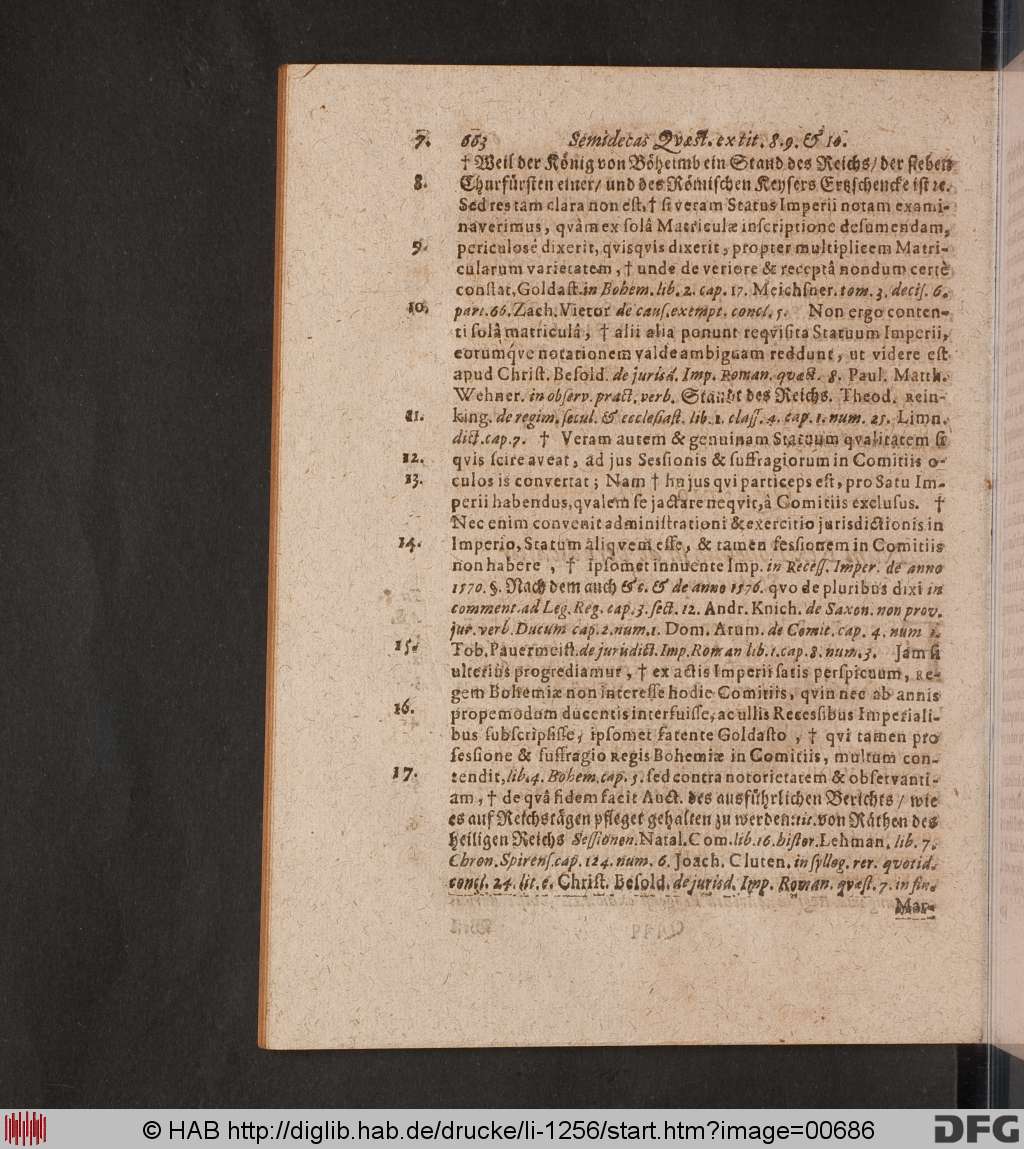 7. 663 Semidecas Quæst. ex tit. 8. 9. & 10.
† Weil der König von Böheimb ein Stand des Reichs / der sieben
8. Churfürsten einer / und des Römischen Keysers Ertzschencke ist ꝛc.
Sed res tam clara non est, † si veram Status Imperii notam exami-
naverimus, quàm ex solâ Matriculæ inscriptione desumendam,
9. periculosè dixerit, qvisqvis dixerit, propter multiplicem Matri-
cularum varietatem, † unde de veriore & receptâ nondum certè
constat, Goldast. in Bohem. lib. 2. cap. 17. Meichsner. tom. 3. decis. 6.
10. part. 66. Zach. Vietor de caus. exempt. concl. 5. Non ergo conten-
ti solâ matriculâ, † alii alia ponunt reqvisita Statuum Imperii,
eorumq́ve notationem valde ambiguam reddunt, ut videre est
apud Christ. Besold. de jurisd. Imp. Roman. quæst. 8. Paul. Matth.
Wehner. in observ. pract. verb. Standt des Reichs. Theod. Rein-
11. king. de regim. secul. & ecclesiast. lib. 1. class. 4. cap. 1. num. 25. Limn.
dict. cap. 7. † Veram autem & genuinam Statuum qvalitatem si
12. qvis scire aveat, ad jus Sessionis & suffragiorum in Comitiis o-
13. culos is convertat; Nam † hujus qvi particeps est, pro Satu Im-
perii habendus, qvalem se jactare neqvit, â Comitiis exclusus. †
Nec enim convenit administrationi & exercitio jurisdictionis in
14. Imperio, Statum aliqvem esse, & tamen sessionem in Comitiis
non habere, † ipsomet innuente Imp. in Recess. Imper. de anno
1570. §. Nach dem auch &c. & de anno 1576. qvo de pluribus dixi in
comment. ad Leg. Reg. cap. 3. sect. 12. Andr. Knich. de Saxon. non prov.
jur. verb. Ducum cap. 2. num. 1. Dom. Arum. de Comit. cap. 4. num 1.
15. Tob. Pauermeist. de jurisdict. Imp. Roman lib. 1. cap. 8. num. 3. Jam si
ulterius progrediamur, † ex actis Imperii satis perspicuum, Re-
gem Bohemiæ non interesse hodie Comitiis, qvin nec ab annis
16. propemodum ducentis interfuisse, ac ullis Recessibus Imperiali-
bus subscripsisse, ipsomet fatente Goldasto, † qvi tamen pro
sessione & suffragio Regis Bohemiæ in Comitiis, multum con-
17. tendit, lib. 4. Bohem. cap. 5. sed contra notorietatem & observanti-
am, † de qvâ fidem facit Auct. des ausführlichen Berichts / wie
es auf Reichstägen pfleget gehalten zu werden: tit. von Räthen des
heiligen Reichs Sessionen. Natal. Com. lib. 16. histor. Lehman. lib. 7.
Chron. Spirens. cap. 124. num. 6. Joach. Cluten. in sylleg. rer. quotid.
concl. 24. lit. e. Christ. Besold. de jurisd. Imp. Roman. quæst. 7. in fin.
Mar-
© HAB http://diglib.hab.de/drucke/li-1256/start.htm?image=00686
DFG